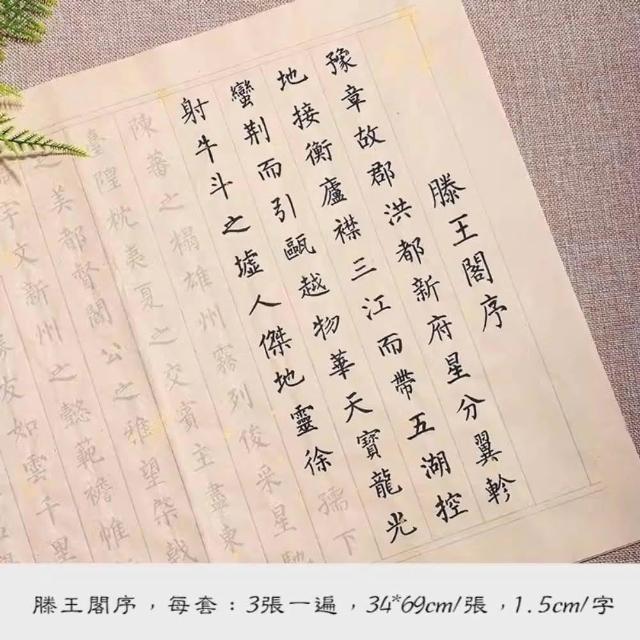 滕王閣序
豫章故郡洪都新府星分翼軫
地接衡廬襟三江而帶五湖控
蠻荊而引甌越物華天寶龍光
射牛斗之墟人傑地靈徐孺下
陳蕃之榻雄州霧列俊采星馳
臺隍枕夷夏之交賓主盡東
之美都督閻公之雅望棨戟
宇文新州之懿範襜帷
友如雲千里
滕王閣序，每套：3張一遍，34*69cm/張，1.5cm/字